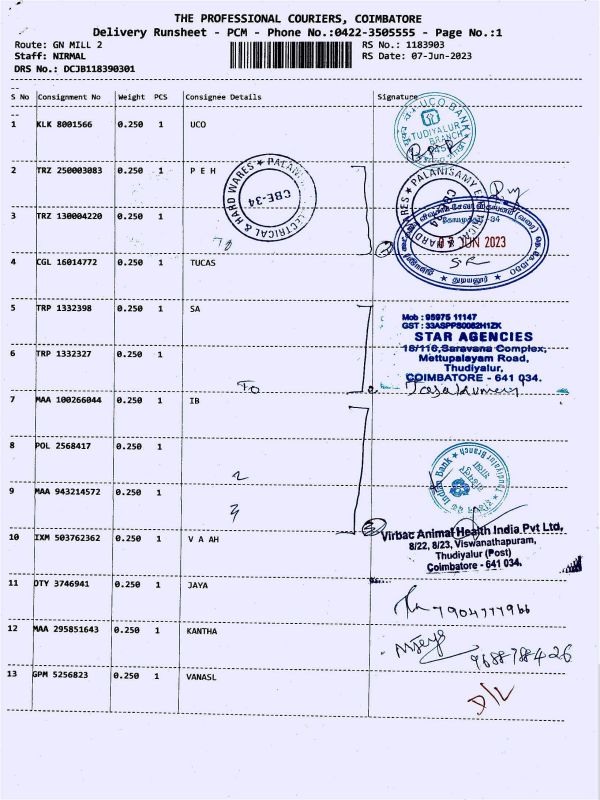 THE PROFESSIONAL COURIERS, COIMBATORE
Delivery Runsheet - PCM - Phone No.:0422-3505555 - Page No.:1
Route: GN MILL 2
RS No.: 1183903
Staff: NIRMAL
RS Date: 07-Jun-2023
DRS No.: DCJB118390301
S No Consignment No Weight PCS Consignee Details Signature
1 KLK 8001566 0.250 1 UCO
UCO BANK
TUDIYALUR
BRANCH
2 TRZ 250003083 0.250 1 P E H
PALANISAMY ELECTRICAL & HARD WARES
CBE-34
3 TRZ 130004220 0.250 1
07 JUN 2023
S.R
துடியலூர்
4 CGL 16014772 0.250 1 TUCAS
5 TRP 1332398 0.250 1 SA
Mob : 95975 11147
GST : 33ASPPS0082H1ZK
STAR AGENCIES
16/116,Saravana Complex,
Mettupalayam Road,
Thudiyalur,
COIMBATORE - 641 034.
6 TRP 1332327 0.250 1
To
7 MAA 100266044 0.250 1 IB
8 POL 2568417 0.250 1
Indian Bank
Thudiyalur Branch
9 MAA 943214572 0.250 1
10 IXM 503762362 0.250 1 V A AH
Virbac Animal Health India Pvt Ltd,
8/22, 8/23, Viswanathapuram,
Thudiyalur (Post)
Coimbatore - 641 034.
11 DTY 3746941 0.250 1 JAYA
7904777966
12 MAA 295851643 0.250 1 KANTHA
9688788426
13 GPM 5256823 0.250 1 VANASL
D/L